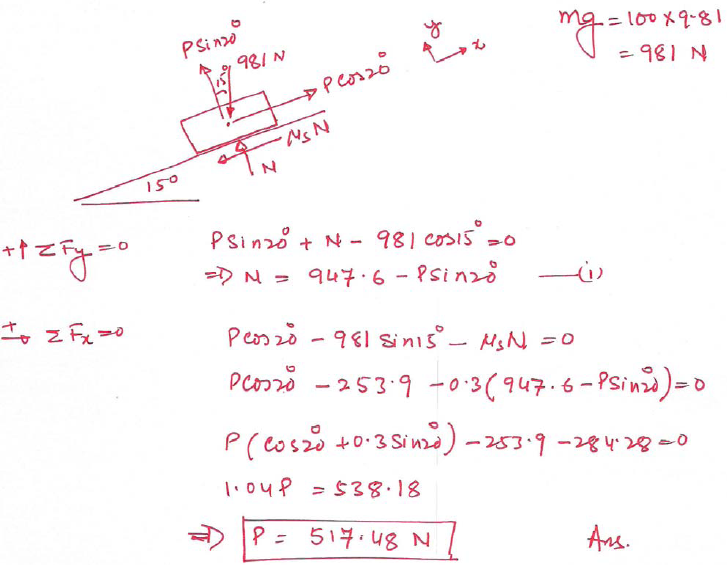 mg = 100 x 9.81
= 981 N
y
x
P sin20°
15°
981 N
P cos20°
μsN
N
15°
+↑ ΣFy = 0
P sin20° + N - 981 cos15° = 0
⇒ N = 947.6 - P sin20° —(i)
+→ ΣFx = 0
P cos20° - 981 sin15° - μsN = 0
P cos20° - 253.9 - 0.3(947.6 - P sin20°) = 0
P(cos20° + 0.3 sin20°) - 253.9 - 284.28 = 0
1.04P = 538.18
⇒ P = 517.48 N Ans.